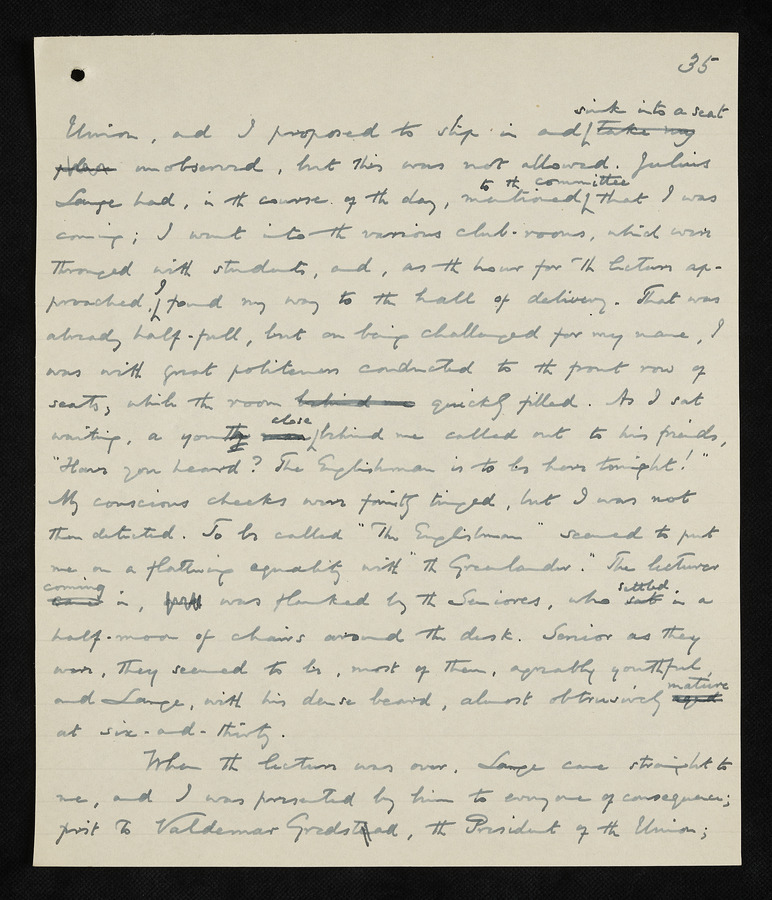 35
sink into a seat
Union, and I proposed to slip in and take my
place unobserved, but this was not allowed. Julius
to the committee
Lange had, in the course of the day, mentioned that I was
coming; I went into the various club-rooms, which were
thronged with students, and, as the hour for the lecture ap-
proached, I found my way to the hall of delivery. That was
already half-full, but on being challenged for my name, I
was with great politeness conducted to the front row of
seats, while the room behind me quickly filled. As I sat
close
waiting, a youth behind me called out to his friends,
"Have you heard? The Englishman is to be here tonight!"
My conscious cheeks were faintly tinged, but I was not
then detected. To be called "The Englishman" seemed to put
me on a flattering equality with "the Greenlander." The lecturer
coming settled
came in, was flanked by the Seniores, who sat in a
half-moon of chairs around the desk. Senior as they
were, they seemed to be, most of them, agreeably youthful,
mature
and Lange, with his dense beard, almost obtrusively aged
at six-and-thirty.
When the lecture was over, Lange came straight to
me, and I was presented by him to everyone of consequence;
first to Valdemar Gredstead, the President of the Union;